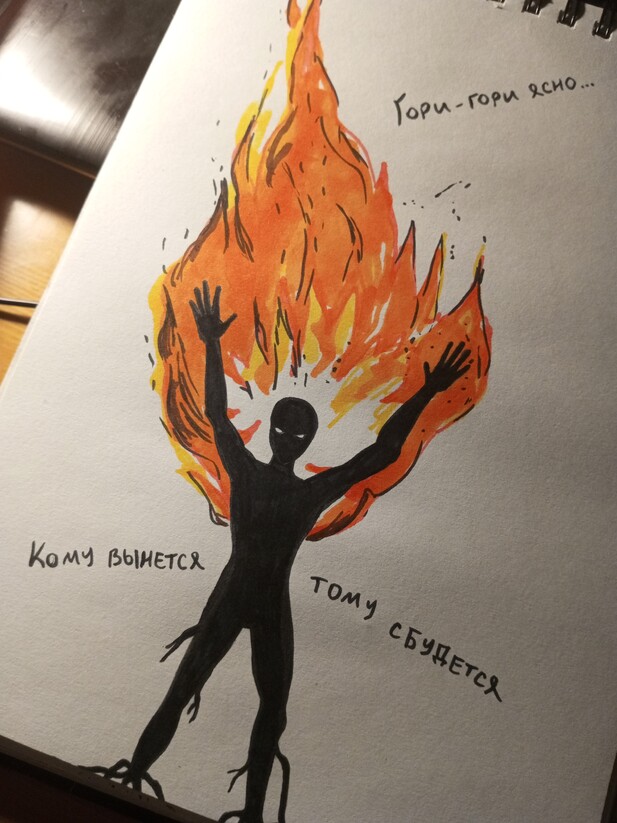 Гори-гори ясно...
Кому вынется
тому сбудется